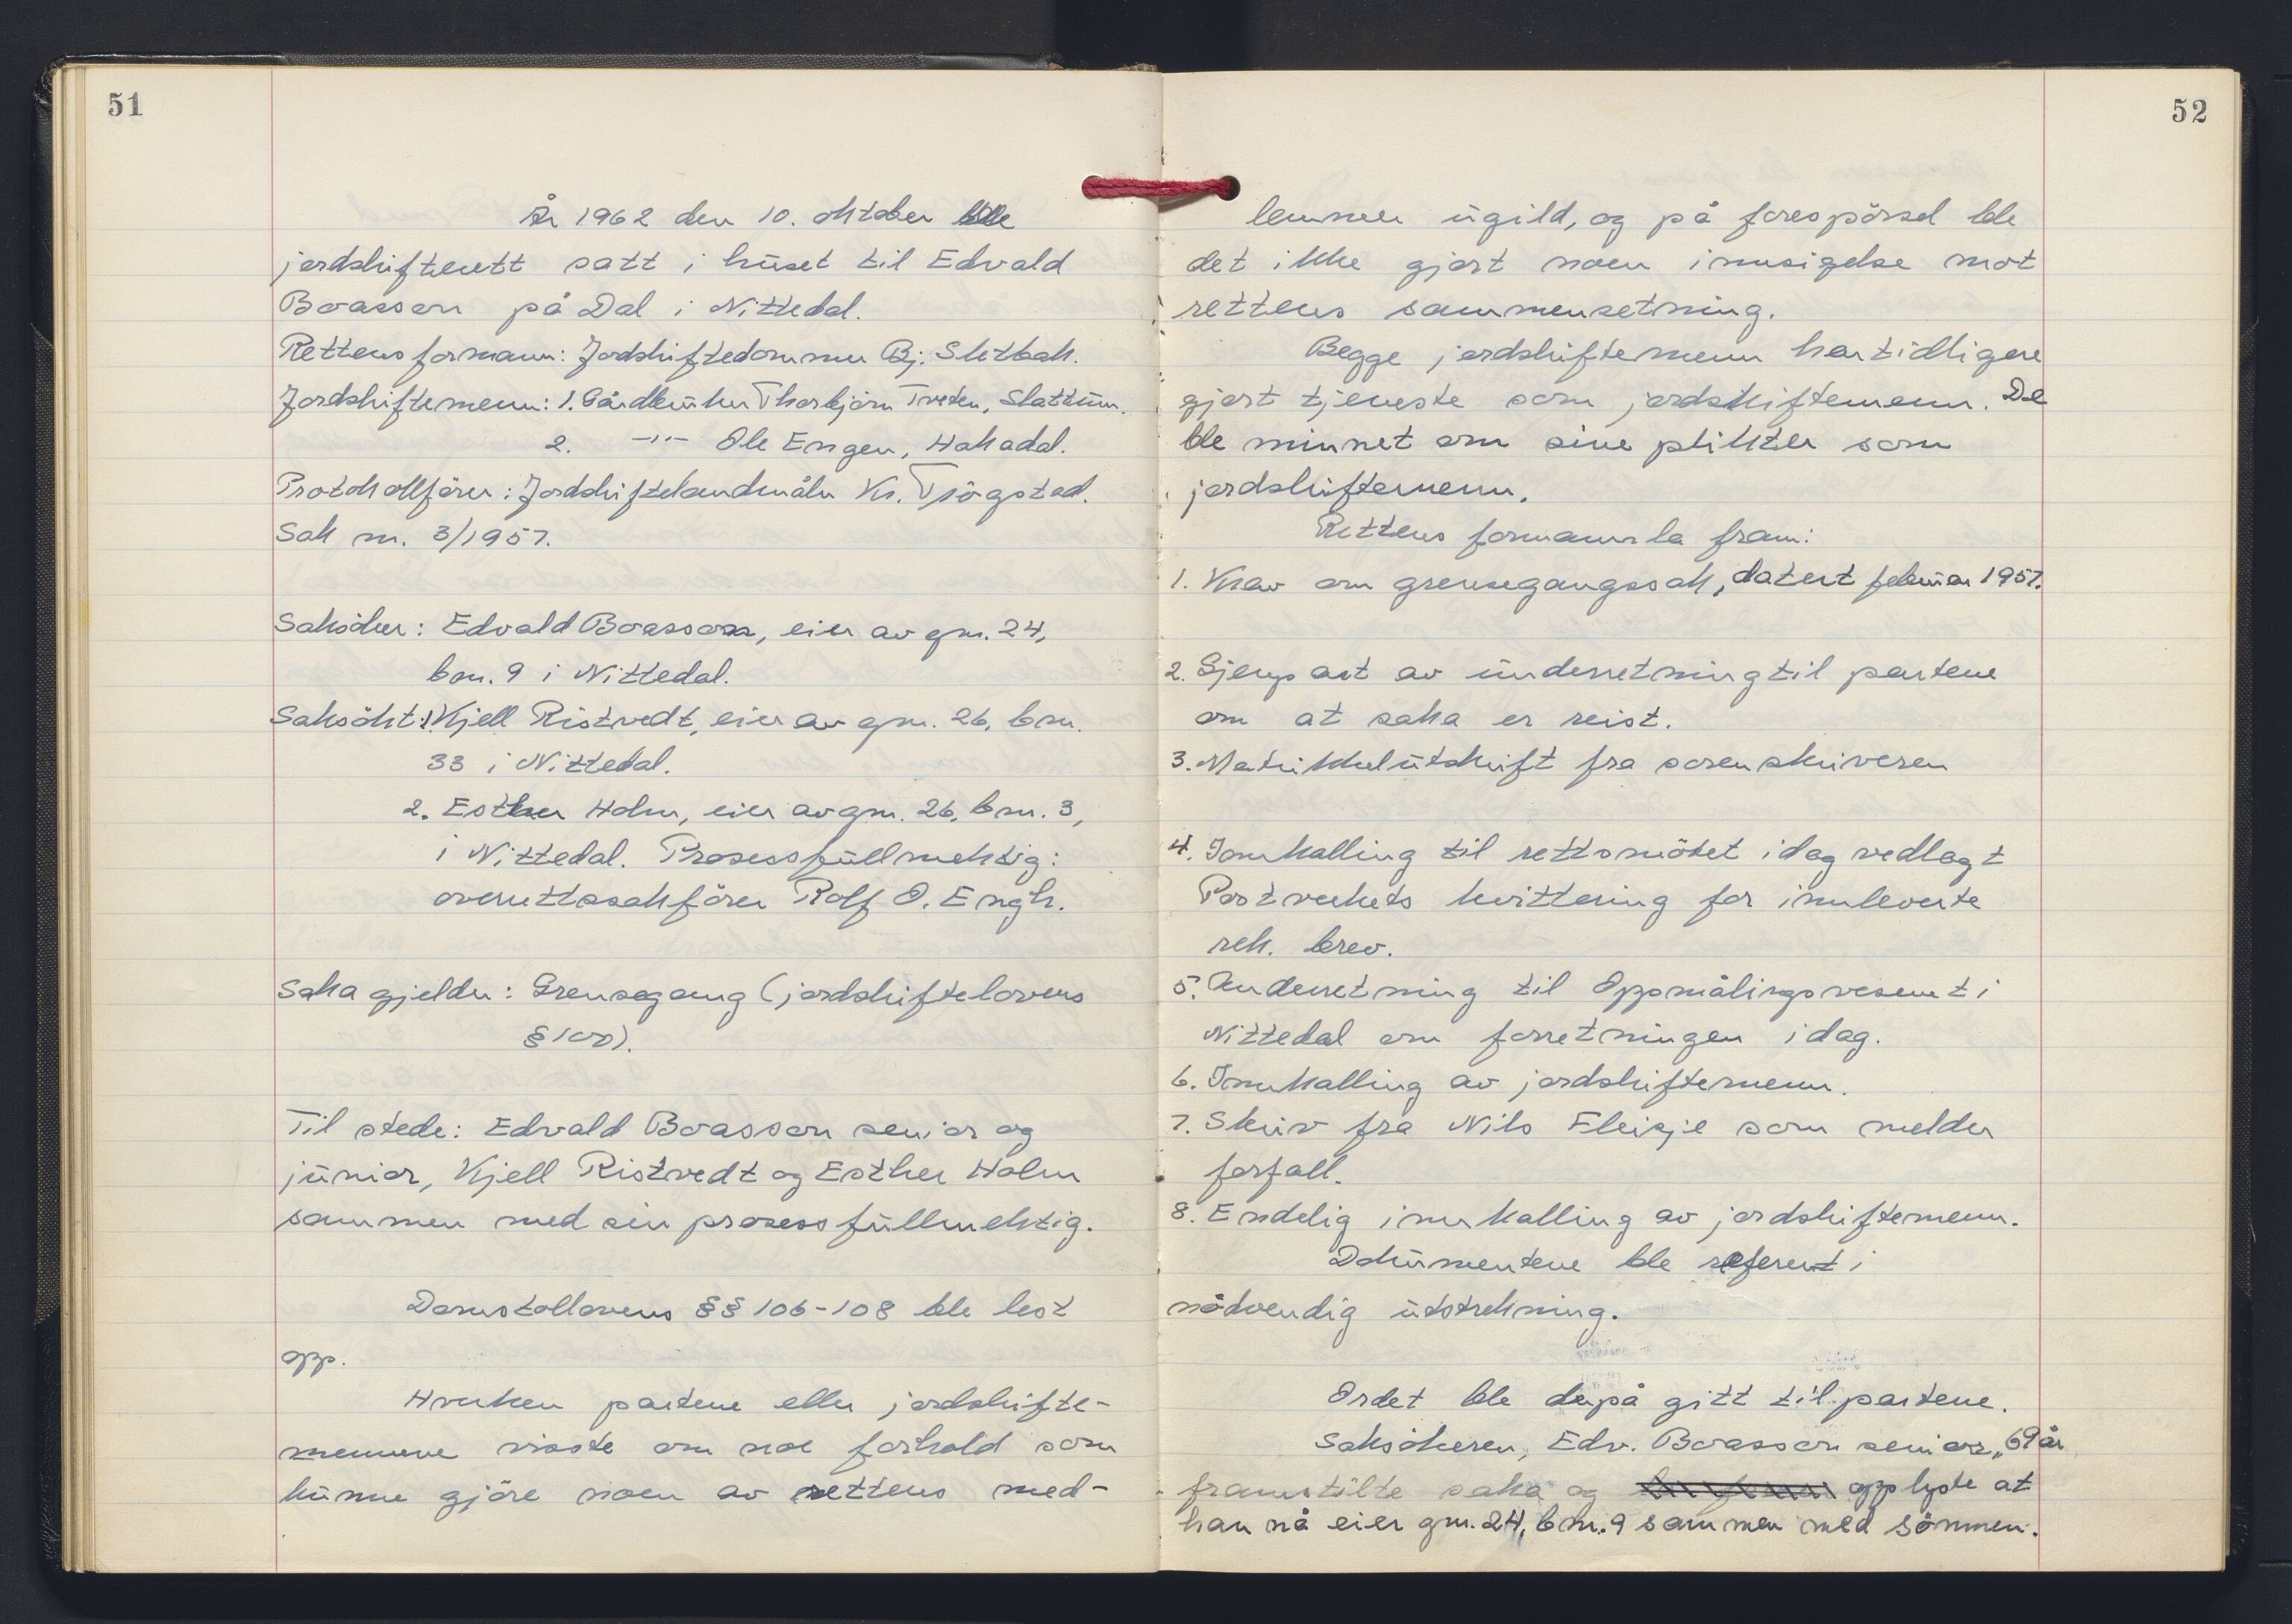 51
År 1962 den 10. oktober ble
jordskifterett satt i huset til Edvald
Boasson på Dal i Nittedal.
Rettens formann: Jordskiftedommer Bj. Sletbak.
Jordskiftemenn: 1. Gårdbruker Thorbjörn Tveten, Slattum.
2. —"— Ole Engen, Hakadal.
Protokollförer: Jordskiftelandmåler Kr. Trögstad.
Sak nr. 3/1957.
Saksöker: Edvald Boasson, eier av gnr. 24,
bnr. 9 i Nittedal.
Saksökt: 1. Kjell Ristvedt, eier av gnr. 26, bnr.
33 i Nittedal.
2. Esther Holm, eier av gnr. 26, bnr. 3,
i Nittedal. Prosessfullmektig:
overrettssakförer Rolf O. Engh.
Saka gjelder: Grensegang (jordskiftelovens
§ 100).
Til stede: Edvald Boasson senior og
junior, Kjell Ristvedt og Esther Holm
sammen med sin prosessfullmektig.
Domstollovens §§ 106-108 ble lest
opp.
Hverken partene eller jordskifte-
mennene visste om noe forhold som
kunne gjöre noen av rettens med-
52
lemmer ugild, og på forespörsel ble
det ikke gjort noen innsigelse mot
rettens sammensetning.
Begge jordskiftemenn har tidligere
gjort tjeneste som jordskiftemenn. De
ble minnet om sine plikter som
jordskiftemenn.
Rettens formann la fram:
1. Krav om grensegangssak, datert februar 1957.
2. Gjenpart av underretning til partene
om at saka er reist.
3. Matrikkelutskrift fra sorenskriveren
4. Innkalling til rettsmötet idag vedlagt
Postverkets kvittering for innleverte
rek. brev.
5. Underretning til Oppmålingsvesenet i
Nittedal om forretningen idag.
6. Innkalling av jordskiftemenn.
7. Skriv fra Nils Fleisje som melder
forfall.
8. Endelig innkalling av jordskiftemenn.
Dokumentene ble referert i
nödvendig utstrekning.
Ordet ble derpå gitt til partene.
Saksökeren, Edv. Boasson senior, 69 år
framstilte saka og opplyste at
han nå eier gnr. 24, bnr. 9 sammen med sönnen.